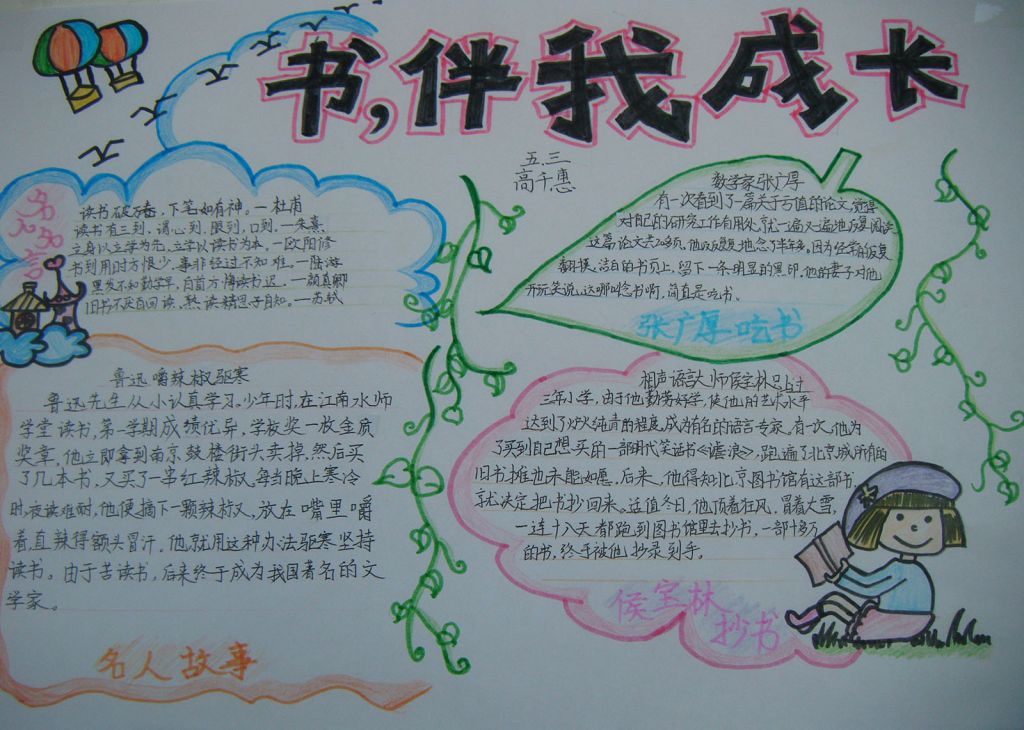 书,伴我成长
五.三
高千惠
名人名言
读书破万卷,下笔如有神。—杜甫
读书有三到,谓心到、眼到、口到,—朱熹
立身以立学为先,立学以读书为本,—欧阳修
书到用时方恨少,事非经过不知难。—陆游
黑发不知勤学早,白首方悔读书迟。—颜真卿
旧书不厌百回读,熟读精思子自知。—苏轼
数学家张广厚
有一次看到了一篇关于亏值的论文,觉得
对自己的研究工作有用处,就一遍又一遍地反复阅读
这篇论文共20多页,他反反复复地念了半年多。因为经常的反复
翻摸,洁白的书页上,留下一条明显的黑印,他的妻子对他
开玩笑说,这哪叫念书啊,简直是吃书、
张广厚吃书
鲁迅嚼辣椒驱寒
鲁迅先生从小认真学习,少年时,在江南水师
学堂读书,第一学期成绩优异,学校奖一枚金质
奖章,他立即拿到南京鼓楼街头卖掉,然后买
了几本书,又买了一串红辣椒,每当晚上寒冷
时,夜读难耐,他便摘下一颗辣椒,放在嘴里嚼
着,直辣得额头冒汗。他就用这种办法驱寒坚持
读书。由于苦读书,后来终于成为我国著名的文
学家。
名人故事
相声语言大师侯宝林只上过
三年小学,由于他勤奋好学,使他的艺术水平
达到了炉火纯青的程度,成为有名的语言专家。有一次,他为
了买到自己想买的一部明代笑话书《谑浪》,跑遍了北京城所有的
旧书摊也未能如愿。后来,他得知北京图书馆有这部书,
就决定把书抄回来。适值冬日,他顶着狂风,冒着大雪,
一连十八天都跑到图书馆里去抄书,一部十多万
的书,终于被他抄录到手。
侯宝林
抄书